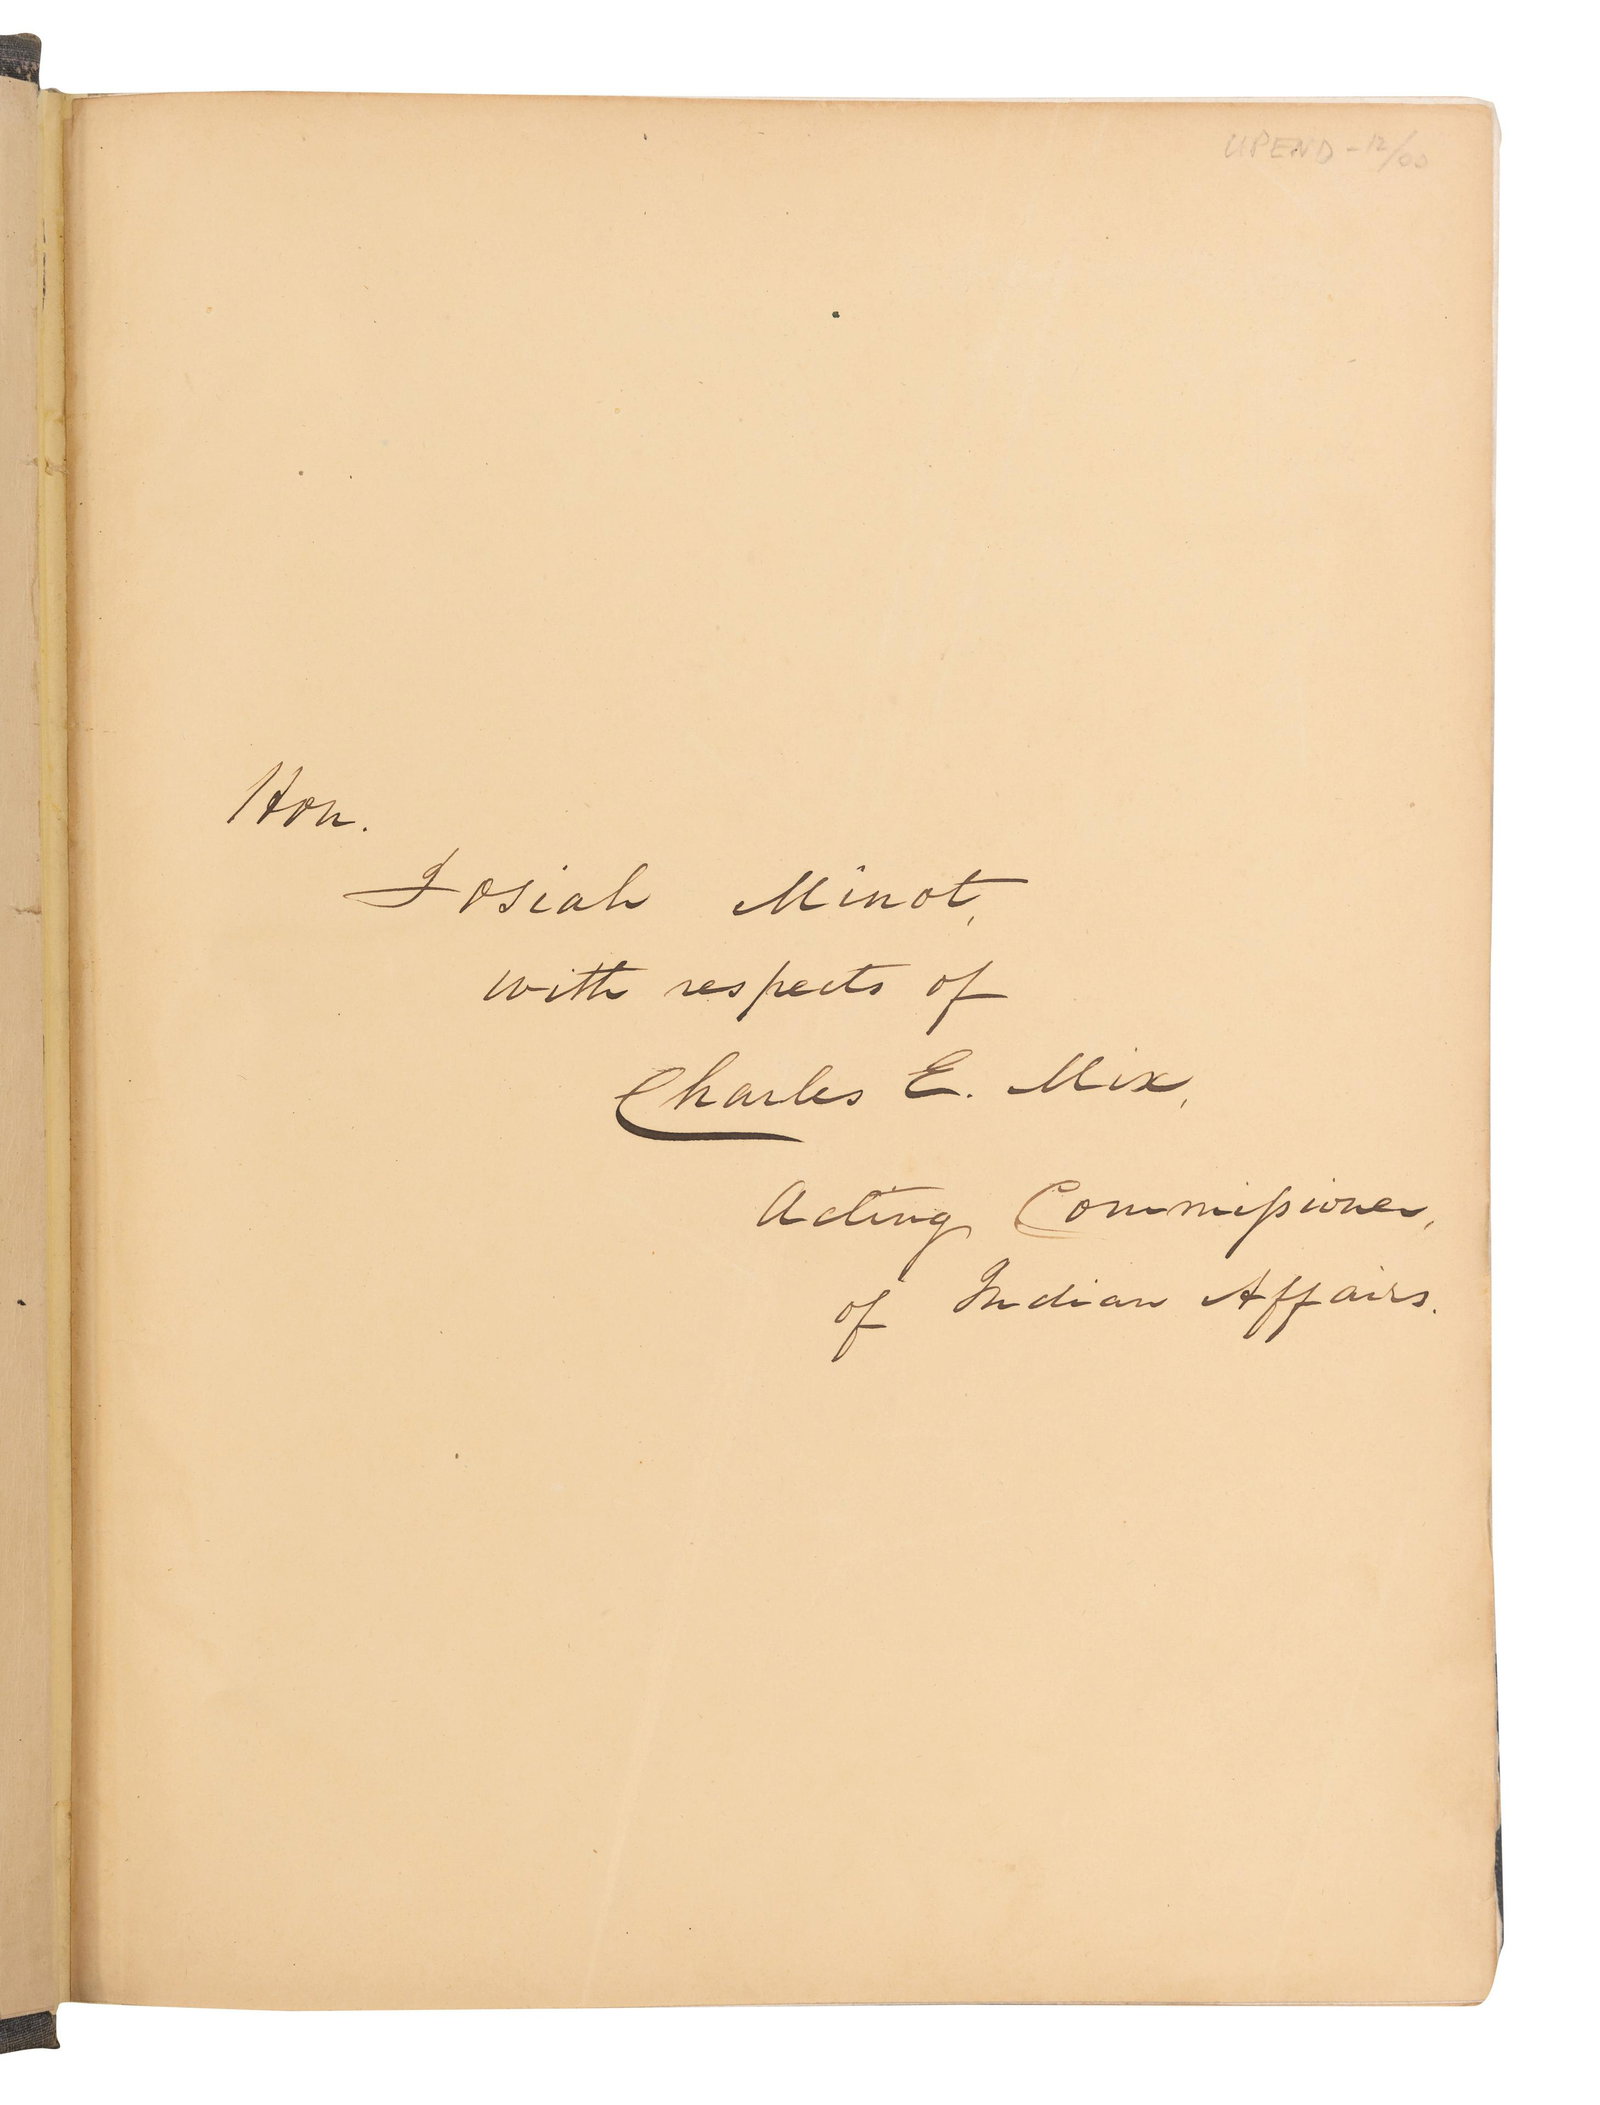 UPEND - 12/00
Hon.
Josiah Minot,
with respects of
Charles E. Mix,
Acting Commissioner,
of Indian Affairs.